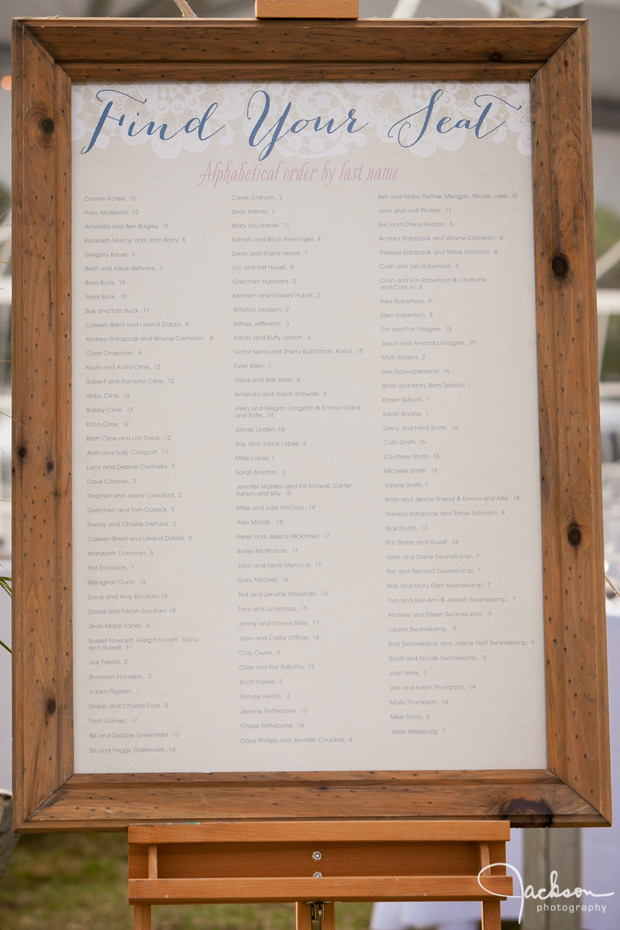 Find Your Seat
Alphabetical order by last name
Connie Acree, 12
Holly Anderson, 12
Amanda and Ben Bagley, 15
Elizabeth Murray and John Barry, 5
Gregory Bauer, 3
Brett and Alison Behrens, 3
Brad Buck, 10
Todd Buck, 10
Sue and Tom Buck, 11
Colleen Brent and Leland Dobbs, 8
Andrea Ratajczak and Wayne Cameron, 4
Clare Chapman, 6
Kevin and Anita Cline, 12
Robert and Ramona Cline, 12
Abby Cline, 12
Bobby Cline, 12
Erica Cline, 12
Brett Cline and Lori Dave, 12
Alan and Sally Comport, 17
Larry and Debbie Contrella, 5
Dave Coronel, 2
Stephen and Jenny Crawford, 3
Gretchen and Tom Cusack, 5
Randy and Christie Deltuva, 2
Colleen Brent and Leland Dobbs, 8
Marybeth Donovan, 6
Pat Donovan, 1
Meaghan Dunn, 16
Dave and Amy Erculiani, 15
David and Farran Erculiani, 15
Jean-Marie Fahey, 4
Russell Fawcett, Greg Fawcett, Alicia
and Russell, 11
Joe Friend, 2
Shannon Flanders, 3
Adam Fligsten, 1
Diane and Charles Ford, 5
Patti Gaines, 17
Bill and Debbie Greenfield, 13
Bill and Peggy Greenwell, 14
Carrie Graham, 2
Sean Hamer, 1
Mary Lou Harrell, 11
Sahrah and Brice Henninger, 4
Dean and Elaine Hovell, 7
Vic and Pat Hovell, 8
Gretchen Hubbard, 2
Kenneth and Lindsey Huber, 2
Winston Jackson, 2
Ashley Jefferson, 3
Sandy and Buffy Jordan, 6
Victor Kerns and Sherry Buschman; Kaiya, 18
Evan Klein, 1
Trisha and Bob Klein, 6
Amanda and Gavin Knowles, 9
Allen and Megan Langston & Emma Grace
and Sofie, 14
James Linden, 16
Ray and Joyce Lopes, 6
Mike Lopez, 1
Sarah Machin, 2
Jennifer Maiden and Ed Schwall, Carter,
Ashlyn and Billy, 10
Mike and Julie McCool, 14
Alex McGill, 14
Peter and Jessica McKinney, 17
Bailey McMahon, 17
John and Heidi Menocal, 17
Gary Mitchell, 16
Ted and Janette Morandin, 13
Paul and Liz Nichols, 15
Jimmy and Donna Niles, 17
John and Cathy Officer, 18
Clay Owen, 3
Chris and Pat Pallotto, 13
Scott Parker, 5
Natalie Parilla, 3
Jeanne Pettebone, 16
Chase Pettebone, 16
Dave Phillips and Jennifer Chuckas, 4
Ben and Maria Plotner, Meagan, Nicole, Luke, 10
John and Judi Plotner, 11
Eric and Cheryl Purdon, 6
Andrea Ratajczak and Wayne Cameron, 4
Theresa Ratajczak and Steve Solomon, 4
Colin and Jan Robertson, 6
Colin and Erin Robertson & Charlotte
and Colin IV, 8
Alex Robertson, 8
Ellen Robertson, 8
Tim and Pat Rodgers, 15
Jason and Amanda Rodgers, 15
Matt Roland, 2
Lexi Schwabenland, 16
Brian and Mary Beth Sebold, 1
Karen Sebold, 1
Sarah Sloane, 1
Gerry and Heidi Smith, 16
Colin Smith, 16
Courtney Smith, 16
Michelle Smith, 16
Valerie Smith, 1
Brian and Jennie Snead & Emma and Allie, 18
Theresa Ratajczak and Steve Solomon, 4
Rick Stuntz, 13
Pat Stuntz and Guest, 18
John and Diane Swanekamp, 7
Pat and Bernard Swanekamp, 7
Rob and Mary Ellen Swanekamp, 7
Tom and Lee Ann & Joseph Swanekamp, 7
Andrew and Eileen Swanekamp, 9
Lauren Swanekamp, 9
Rob Swanekamp and Jolene Hart Swanekamp, 9
Scott and Nicole Swanekamp, 9
Josh Teets, 3
Joe and Kristin Thompson, 14
Molly Thompson, 14
Mike Trania, 2
Jesse Weisburg, 1
Jackson
photography